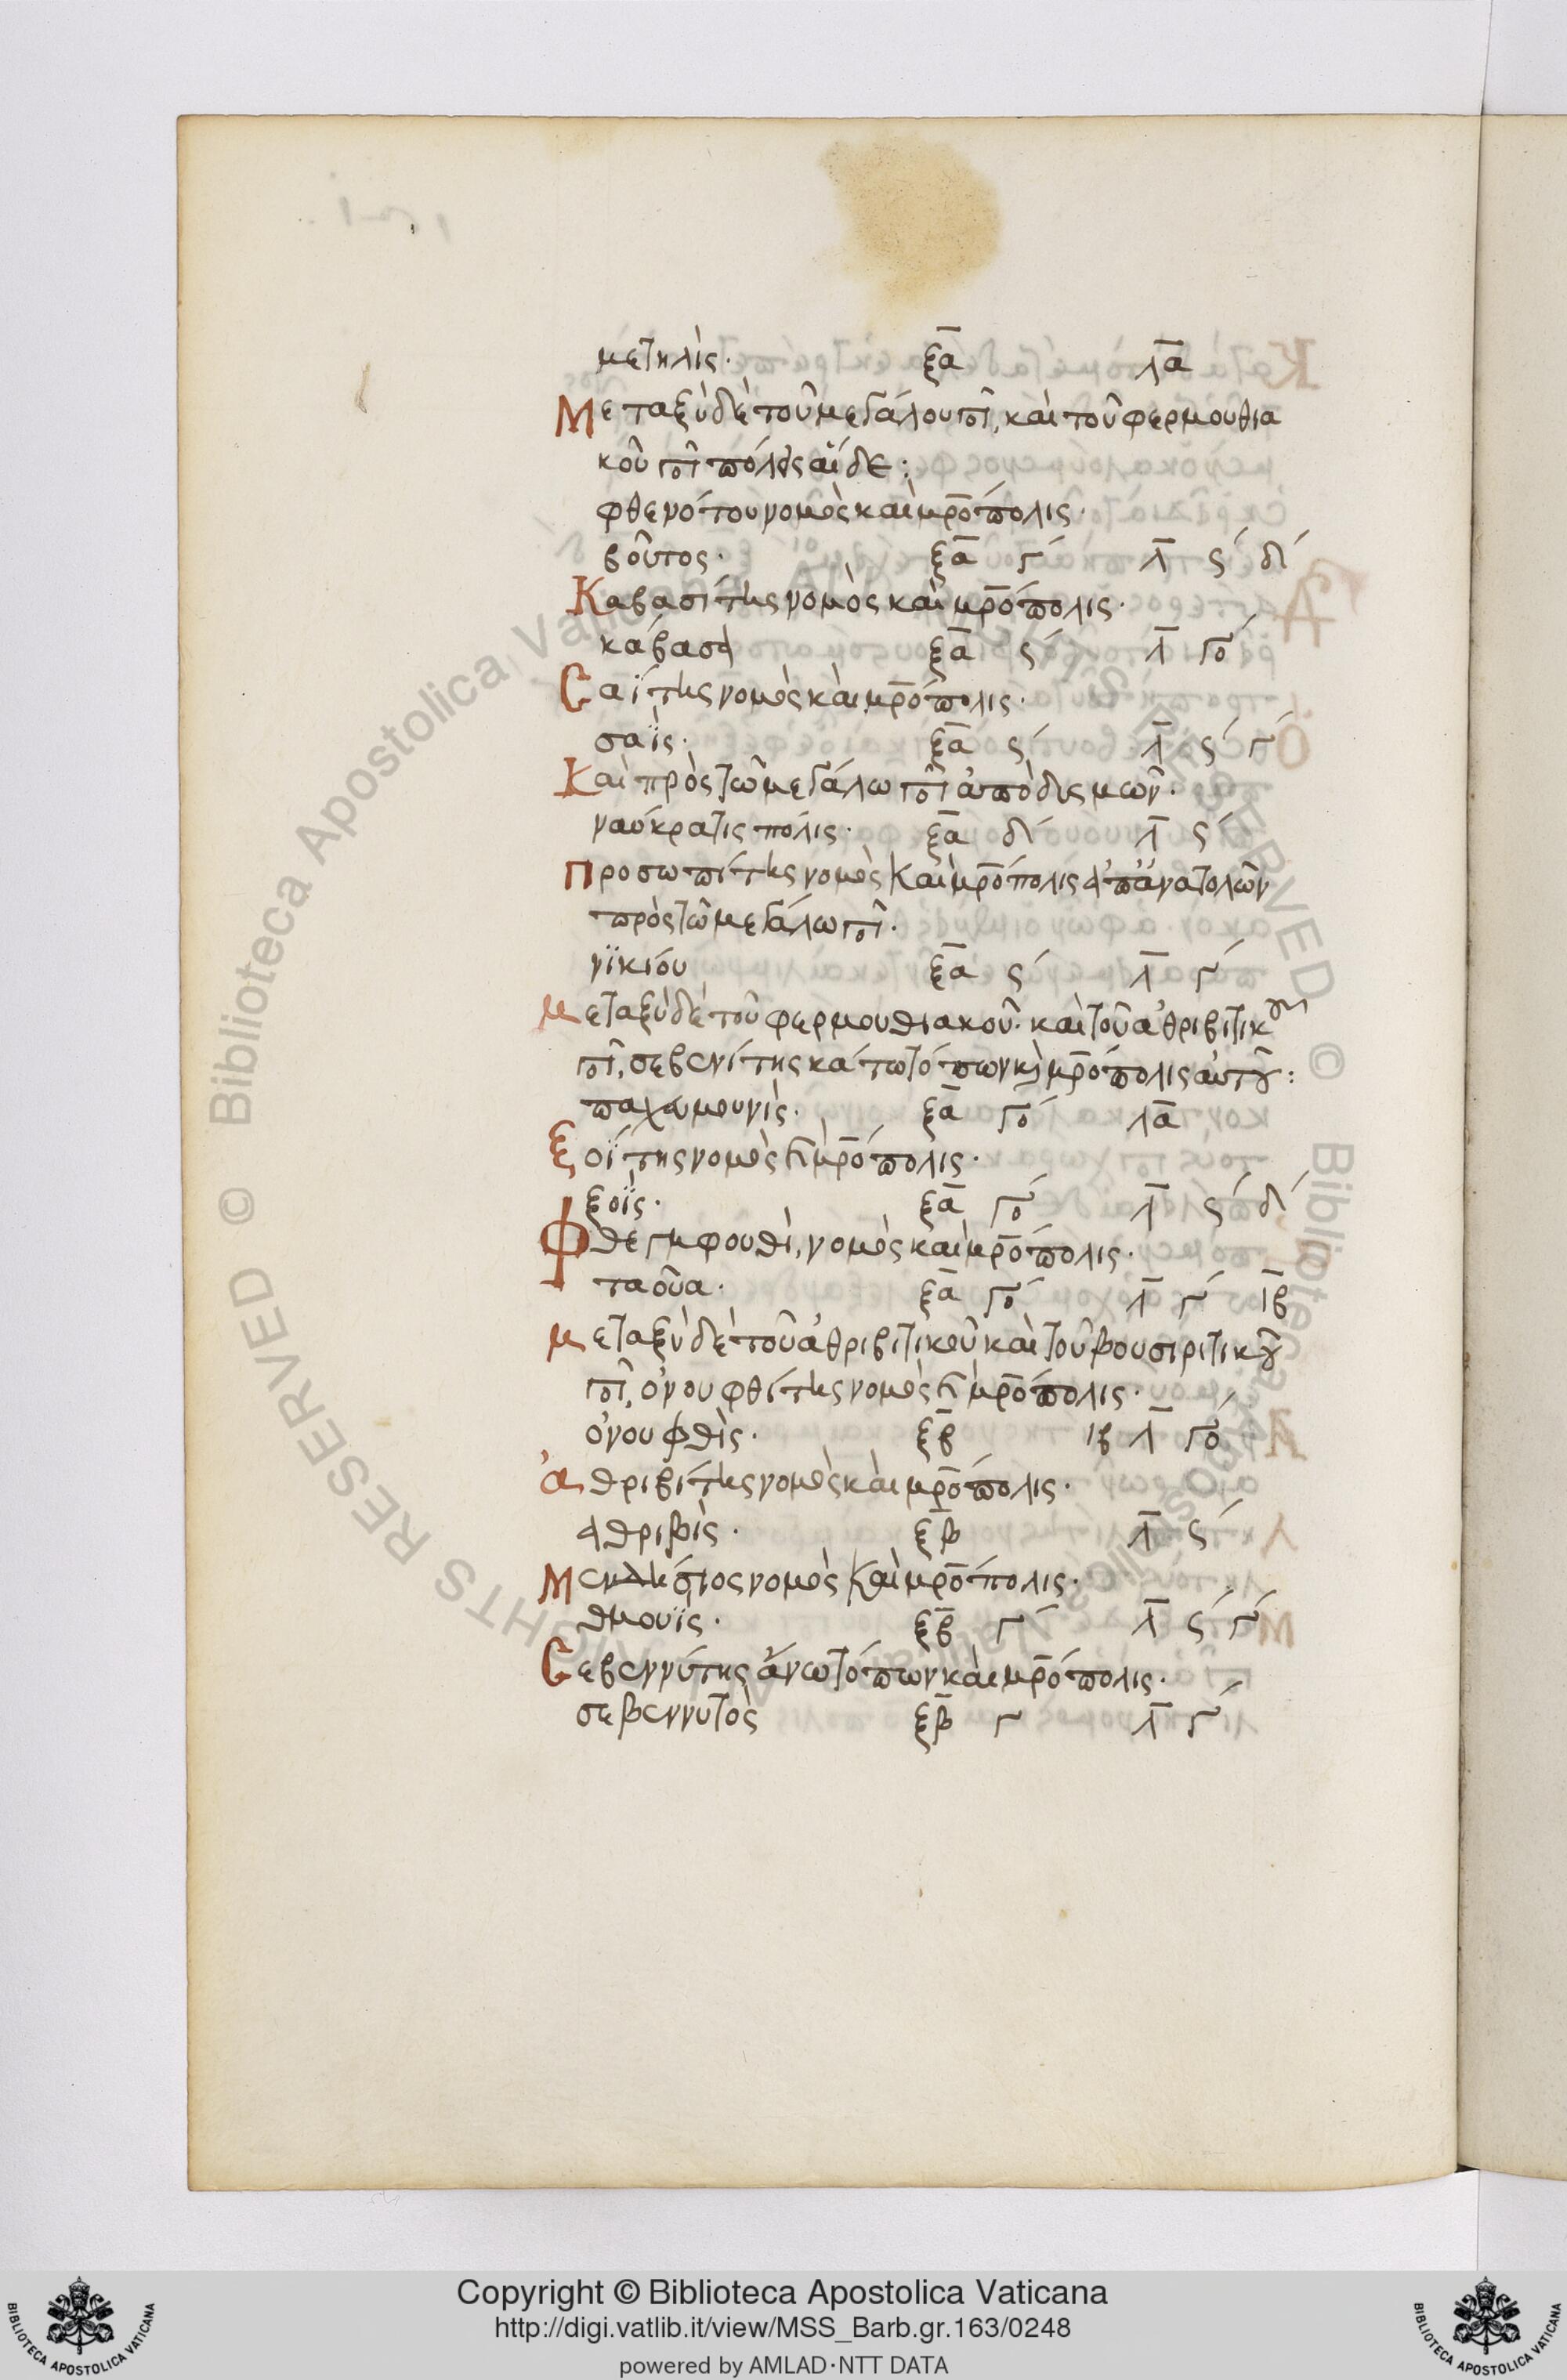 μετηλὶς· ξ̅α̅ λ̅α̅
Μεταξὺ δὲ τοῦ μεγάλου ποῖ, καὶ τοῦ φερμουθια
κοῦ ποῖ πόλεις αἵδε:
φθενότου νομὸς καὶ μρ̅όπολις·
βοῦτος· ξ̅α̅ γʹ λ̅ ϛʹ δʹ
Καβασίτης νομὸς καὶ μρ̅όπολις·
κάβασα ξ̅α̅ ϛʹ λ̅ γοʹ
Σαΐτης νομὸς καὶ μρ̅όπολις·
σαῒς· ξ̅α̅ ϛʹ λ̅ ϛʹ γʹ
Καὶ πρὸς τῶ μεγάλω ποῖ ἀπὸ δυσμῶν·
ναύκρατις πόλις· ξ̅α̅ δʹ λ̅ ϛʹ
Προσωπίτης νομὸς καὶ μρ̅όπολις ἀπ' ἀνατολῶν
πρὸς τῶ μεγάλω ποῖ·
νϊκίου ξ̅α̅ ϛʹ λ̅ γʹ
μεταξὺ δὲ τοῦ φερμουθιακοῦ· καὶ τοῦ ἀθριβιτικοῦ
ποῖ, σεβενίτης κάτω τόπων κὶ μρ̅όπολις αὐτοῦ:
παχνμουνὶς· ξ̅α̅ γοʹ λ̅α̅
ξοΐτης νομὸς κὶ μρ̅όπολις·
ξοῒς· ξ̅α̅ γοʹ λ̅ ϛʹ δʹ
Φθεγμφουθὶ, νομὸς καὶ μρ̅όπολις·
ταοῦα· ξ̅α̅ γοʹ λ̅ γʹ ι̅β̅
μεταξὺ δὲ τοῦ ἀθριβιτικοῦ καὶ τοῦ βουσιριτικοῦ
ποῖ, ὀνουφθίτης νομὸς κὶ μρ̅όπολις·
ὀνουφθὶς· ξ̅β̅ ιβ λ̅ γοʹ
ἀθριβίτης νομὸς καὶ μρ̅όπολις·
αθριβὶς· ξ̅β̅ λ̅ ϛʹ
Μενδήσιος νομὸς καὶ μρ̅όπολις·
θμουῒς· ξ̅β̅ γʹ λ̅ ϛʹ γʹ
Σεβεννύτης ἄνω τόπων καὶ μρ̅όπολις·
σεβεννυτὸς ξ̅β̅ γ λ̅ γʹ
Copyright © Biblioteca Apostolica Vaticana
http://digi.vatlib.it/view/MSS_Barb.gr.163/0248
powered by AMLAD·NTT DATA